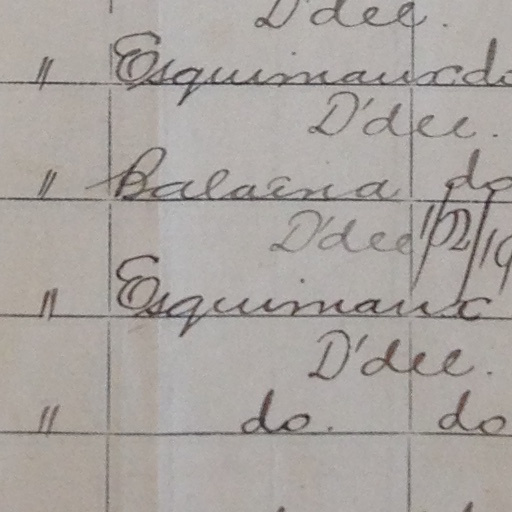 D'dee.
" Esquimaux do
D'dee.
" Balaena do
D'dee
" Esquimaux
D'dee.
" do. do